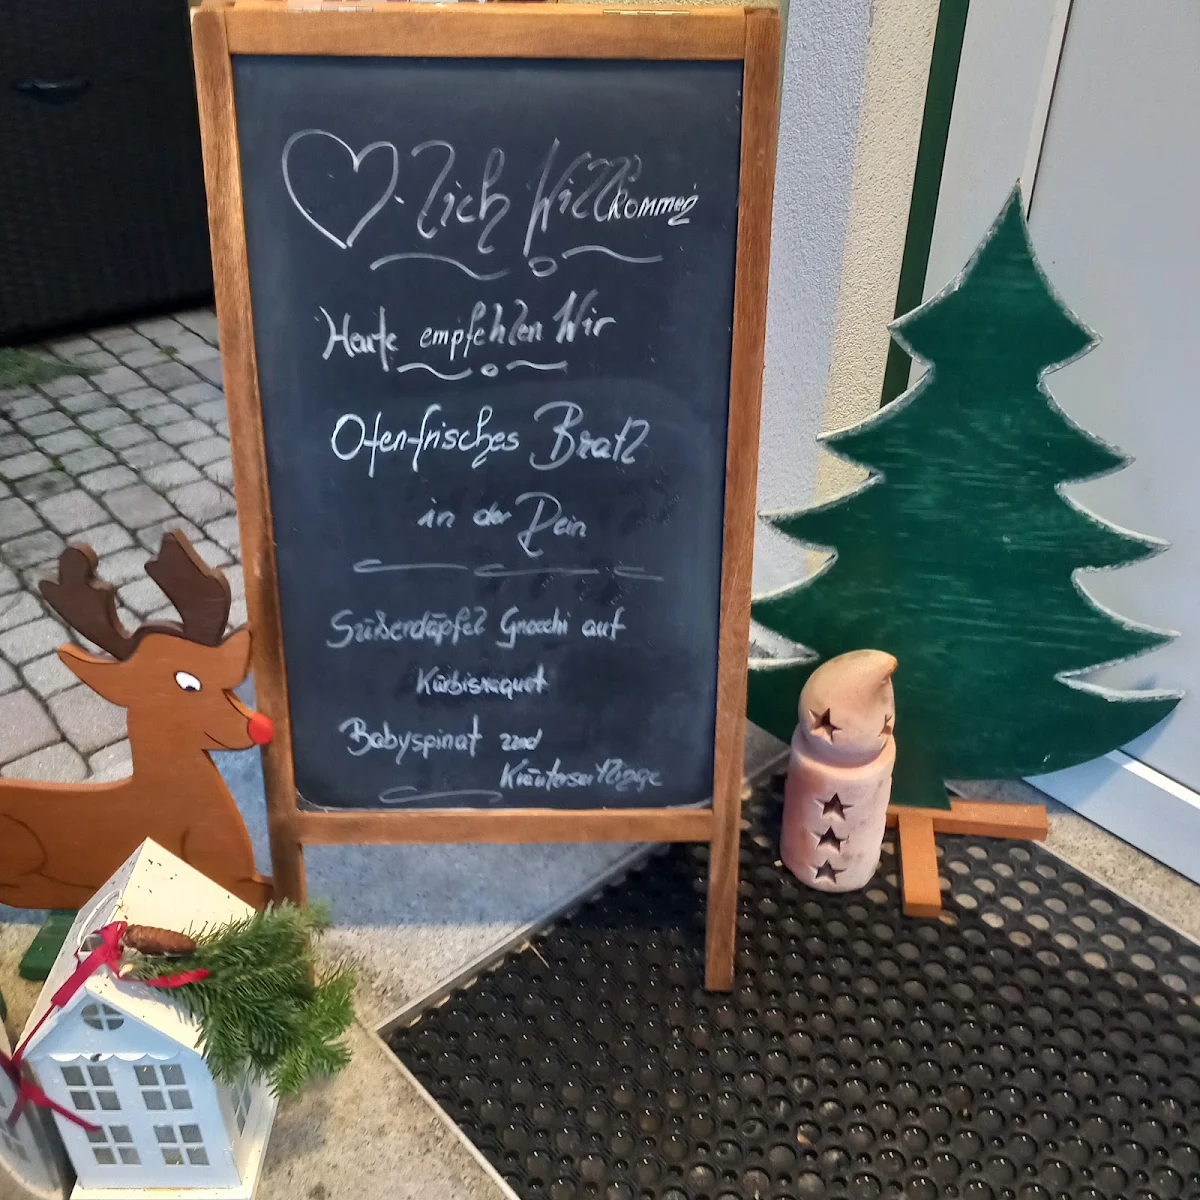 ♡-lich Willkommen
Heute empfehlen Wir
Ofenfrisches Bratl
in der Rein
Süßerdäpfel Gnocchi auf
Kürbisragout
Babyspinat und
Kräuterseitlinge